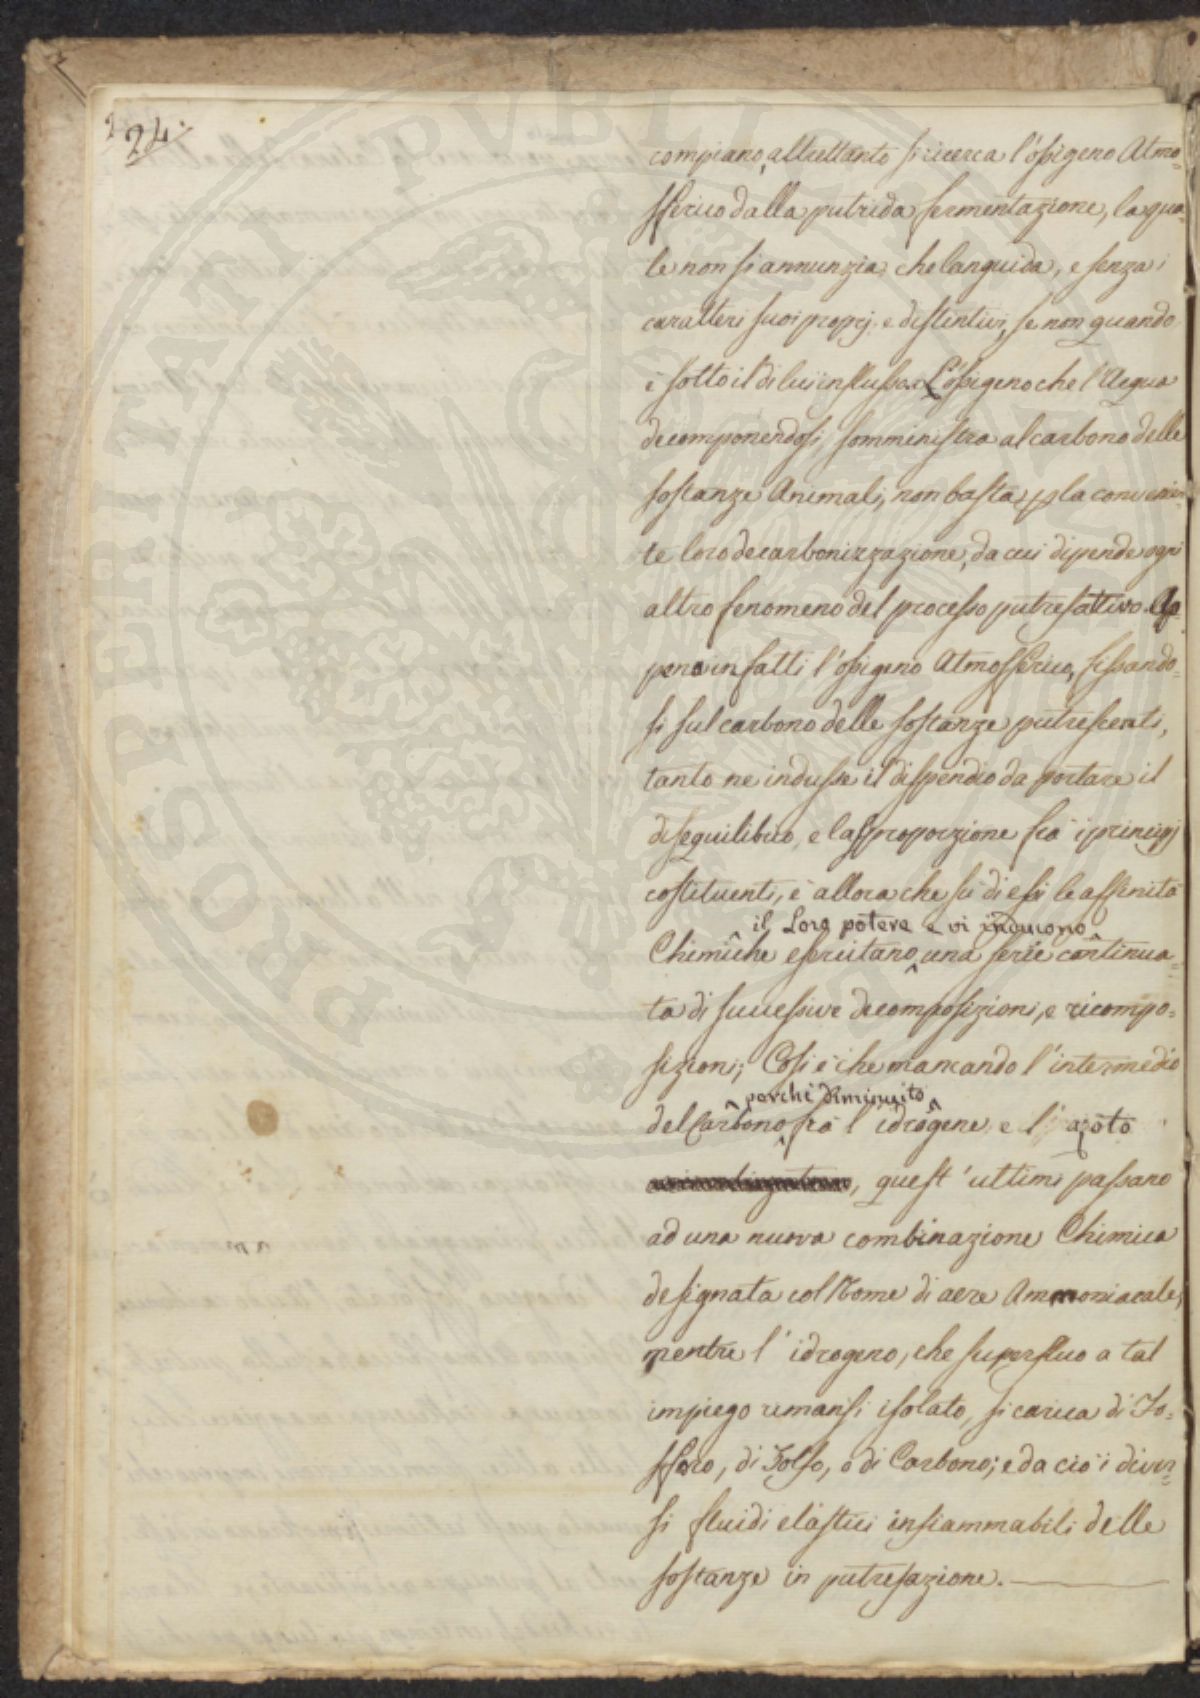 24.
compiano, altrettanto si ricerca l'ossigeno Atmo=
sferico dalla putrida fermentazione, la qua=
le non si annunzia, che languida, e senza i
caratteri suoi proprj e distintivi, se non quando
è sotto il di lui influsso. L'ossigeno che l'Acqua
decomponendosi, somministra al carbono delle
sostanze Animali, non basta p la convenien
te loro decarbonizzazione, da cui dipende ogni
altro fenomeno del processo putrefattivo. Ap=
pena infatti l'ossigeno Atmosferico, fissando=
si sul carbono delle sostanze putrescenti,
tanto ne indusse il dispendio da portare il
disequilibrio, e la sproporzione frà i principj
costituenti, è allora che fù di essi le affinità
il Loro potere e vi inducono
Chimiche esercitano una serie continua=
ta di successive decomposizioni, e ricompo=
sizioni; Così è che mancando l'intermedio
perchè diminuito
del Carbono frà l'idrogene e l'azoto
, quest'ultimi passano
ad una nuova combinazione Chimica
designata col Nome di aere Ammoniacale,
mentre l'idrogeno, che superfluo a tal
impiego rimansi isolato, si carica di Fo=
sforo, di Solfo, o di Carbono; e da ciò i diver=
si fluidi elastici infiammabili delle
sostanze in putrefazione.
PROSPERITATI PVBLICAE